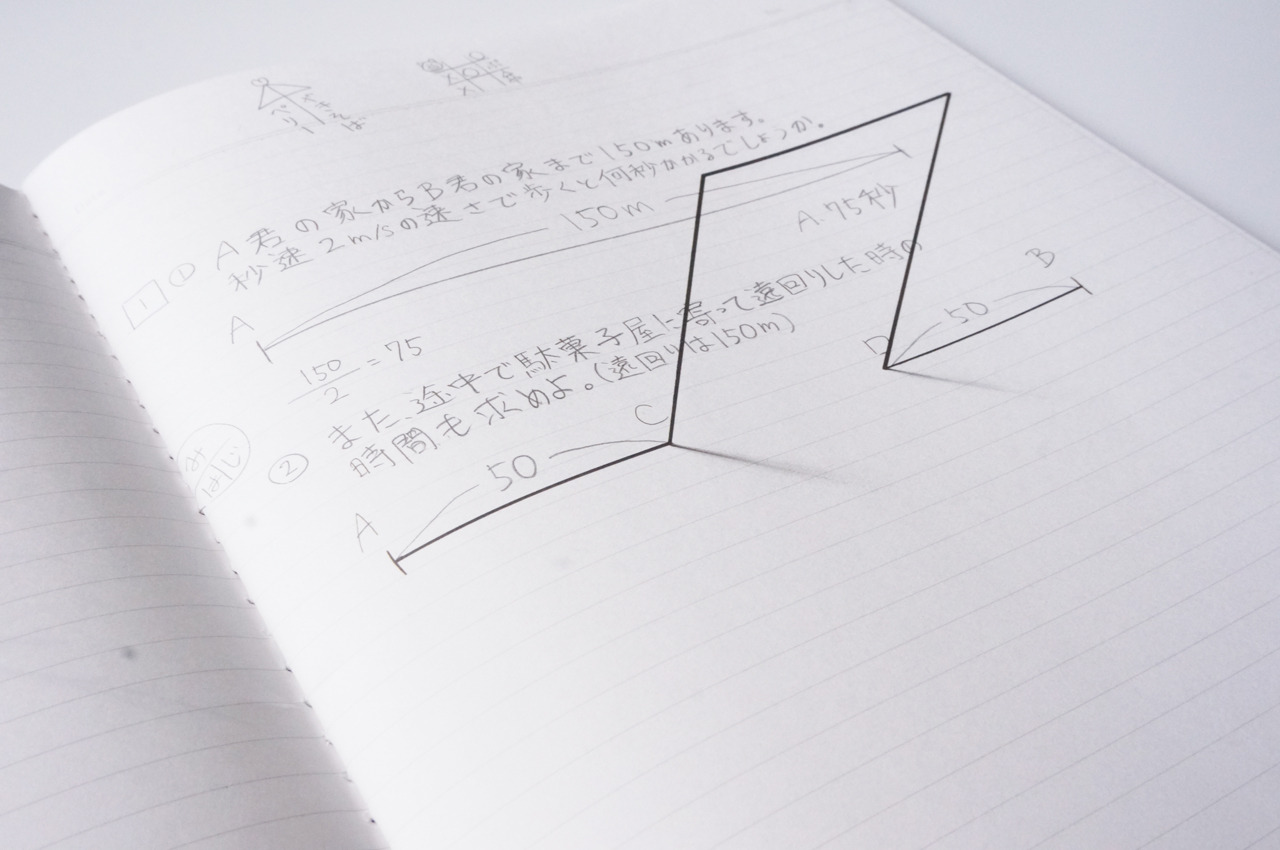 へ
リ
1 ① A君の家からB君の家まで150mあります。
秒速2m/sの速さで歩くと何秒かかるでしょうか。
150m
A
A.75秒
150/2=75
② また、途中で駄菓子屋に寄って遠回りした時の
時間も求めよ。(遠回りは150m)
み
はじ
A 50 C
D 50 B